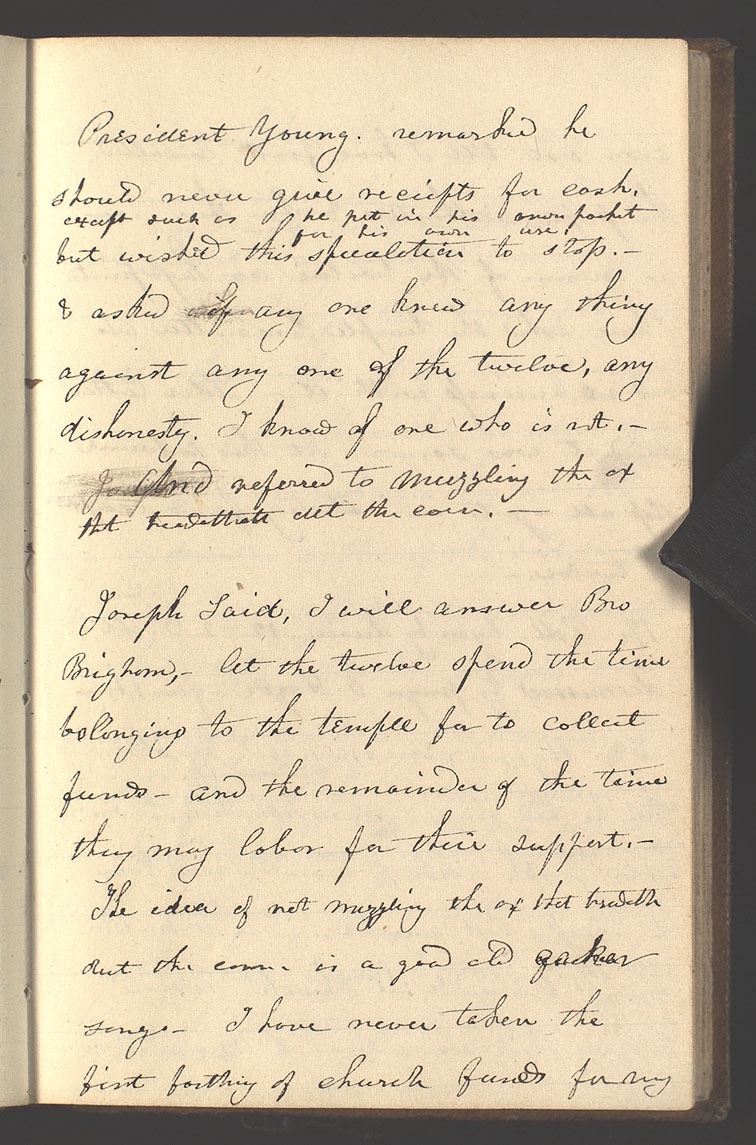 President Young. remarked he
should never give receipts for cash.
except such as he put in his own pocket
for his own use.
but wished this speculation to stop.—
& asked if any one knew any thing
against any one of the twelve, any
dishonesty. I know of one who is not.—
And referred to muzzling the ox
tht treadethath out the corn.—
Joseph Said, I will answer Bro
Brigham,- let the twelve spend the time
belonging to the temple for to collect
funds— and the remainder of the time
they may labor for their support.—
The idea of not muzzling the ox tht treadeth
out the corn is a good old quaker
song.— I have never taken the
first farthing of church funds for my